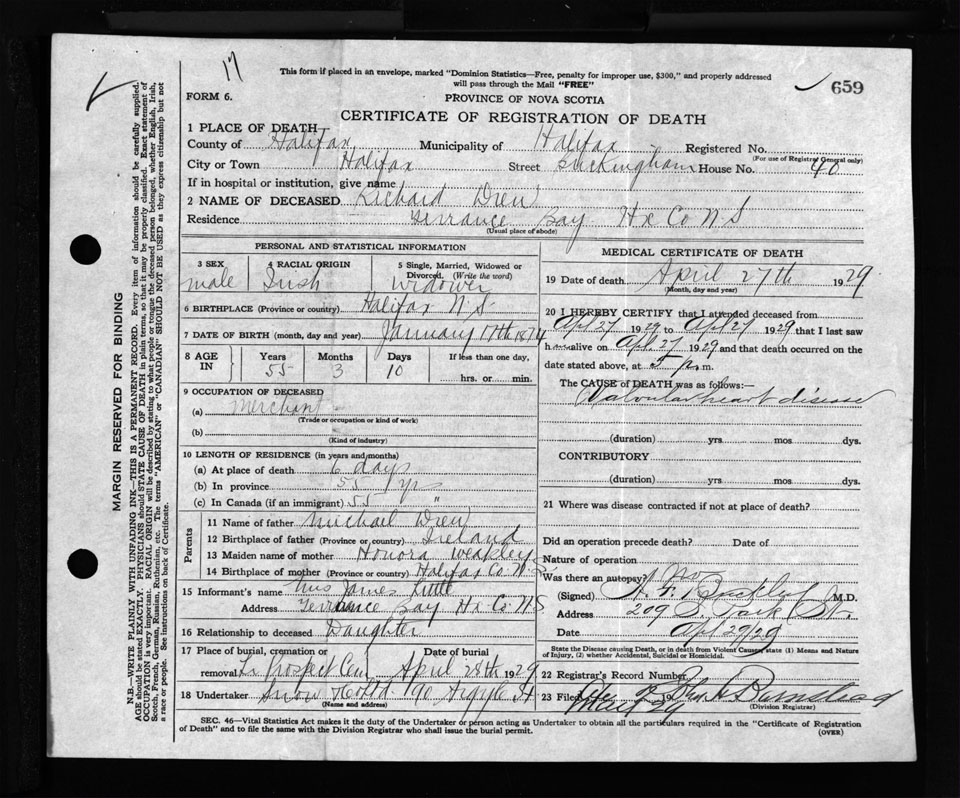 17
This form if placed in an envelope, marked "Dominion Statistics—Free, penalty for improper use, $300," and properly addressed
will pass through the Mail "FREE"
659
FORM 6.
PROVINCE OF NOVA SCOTIA
CERTIFICATE OF REGISTRATION OF DEATH
1 PLACE OF DEATH
County of Halifax Municipality of Halifax Registered No.
(For use of Registrar General only)
City or Town Halifax Street Buckingham House No. 40
If in hospital or institution, give name
2 NAME OF DECEASED Richard Drew
Residence Terrance Bay Hx Co N S
(Usual place of abode)
PERSONAL AND STATISTICAL INFORMATION
3 SEX 4 RACIAL ORIGIN 5 Single, Married, Widowed or Divorced. (Write the word)
male Irish widower
6 BIRTHPLACE (Province or country) Halifax N.S.
7 DATE OF BIRTH (month, day and year) January 17th 1874
8 AGE IN Years Months Days If less than one day,
55 3 10 hrs. or min.
9 OCCUPATION OF DECEASED
(a) Merchant
(Trade or occupation or kind of work)
(b)
(Kind of industry)
10 LENGTH OF RESIDENCE (in years and months)
(a) At place of death 6 days
(b) In province 55 yrs
(c) In Canada (if an immigrant) 55 "
Parents
11 Name of father Michael Drew
12 Birthplace of father (Province or country) Ireland
13 Maiden name of mother Honora Weakley
14 Birthplace of mother (Province or country) Halifax Co N.S
15 Informant's name Mrs James Little
Address Terrance Bay Hx Co N.S
16 Relationship to deceased Daughter
17 Place of burial, cremation or removal Date of burial
Prospect Cem April 28th 1929
18 Undertaker Snow & Co Ltd 190 Argyle St
(Name and address)
MEDICAL CERTIFICATE OF DEATH
19 Date of death April 27th 1929
(Month, day and year)
20 I HEREBY CERTIFY that I attended deceased from
Apl 27 1929 to Apl 27 1929 that I last saw
him alive on Apl 27 1929 and that death occurred on the
date stated above, at 5 p.m.
The CAUSE OF DEATH was as follows:—
Valvular heart disease
(duration) yrs mos dys.
CONTRIBUTORY
(duration) yrs. mos dys.
21 Where was disease contracted if not at place of death?
Did an operation precede death? Date of
Nature of operation
Was there an autopsy? No
(Signed) M.D.
Address 209 S. Park St.
Date Apl 29/29
State the Disease causing Death, or in death from Violent Causes state (1) Means and Nature
of Injury, (2) whether Accidental, Suicidal or Homicidal.
22 Registrar's Record Number
23 Filed 19
(Division Registrar)
SEC. 46—Vital Statistics Act makes it the duty of the Undertaker or person acting as Undertaker to obtain all the particulars required in the "Certificate of Registration
of Death" and to file the same with the Division Registrar who shall issue the burial permit.
(OVER)
MARGIN RESERVED FOR BINDING
N.B.—WRITE PLAINLY WITH UNFADING INK—THIS IS A PERMANENT RECORD. Every item of information should be carefully supplied.
AGE should be stated EXACTLY. PHYSICIANS should STATE CAUSE OF DEATH in plain terms, so that it may be properly classified. Exact statement of
OCCUPATION is very important. RACIAL ORIGIN will be described by stating to what people or tongue the deceased person belonged, whether English, Irish,
Scotch, French, German, Russian, Ruthenian, etc. The terms "AMERICAN" or "CANADIAN" SHOULD NOT BE USED as they express citizenship but not
a race or people. See instructions on back of Certificate.